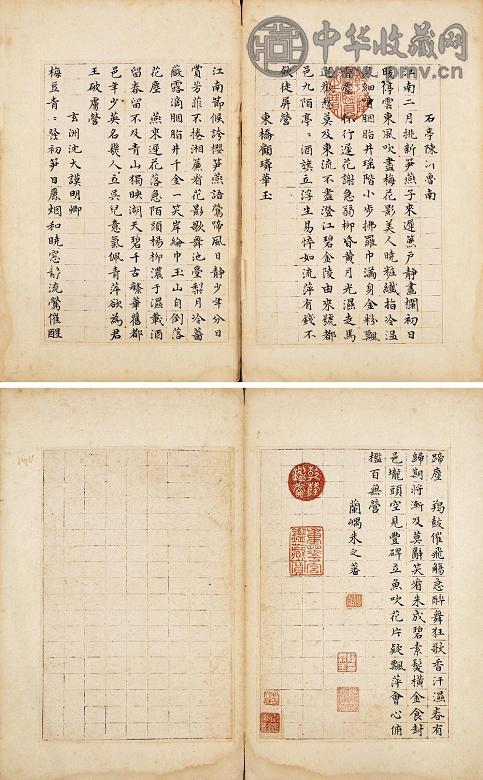 中华收藏网
石亭陳沂魯南
江南二月桃新笋燕子來遲燕戶靜畫欄初日
暖停雲東風吹盡梅花影美人曉粧纖指冷溫
胭脂井瑤階小步拂羅巾滿身金粉飄
行遲花謝急弱柳昏黃月光濕走馬
愁莫及東流不盡澄江碧金陵由來號都
邑九陌亭〻酒旗立浮生易悴如流萍有錢不
飲徒屏營
東橋顧璘華玉
江南節候誇櫻笋燕語鶯啼風日靜少年分日
賞芳菲不捲湘簾看花影歌舞池臺梨月冷薔
薇露滴胭脂井千金一笑岸綸巾玉山自倒落
花塵 燕來遲花落急陌頭楊柳濃于濕載酒
留春留不及青山獨映湖天碧千古繁華舊都
邑年少英名幾人立吳兒意氣佩青萍欲為君
王破虜營
玄洲沈大謨明卿
梅豆青〻發初笋日麗烟和曉窓静流鶯催醒
蹄塵 羯鼓催飛觴急醉舞狂歌香汗濕春有
歸期將漸及莫辭笑看朱成碧素髮橫金食封
邑壠頭空見豐碑立魚吹花片疑飄萍會心俯
檻百無營
蘭嵎朱之蕃
乾隆鑑賞
重華宮鑑藏寶